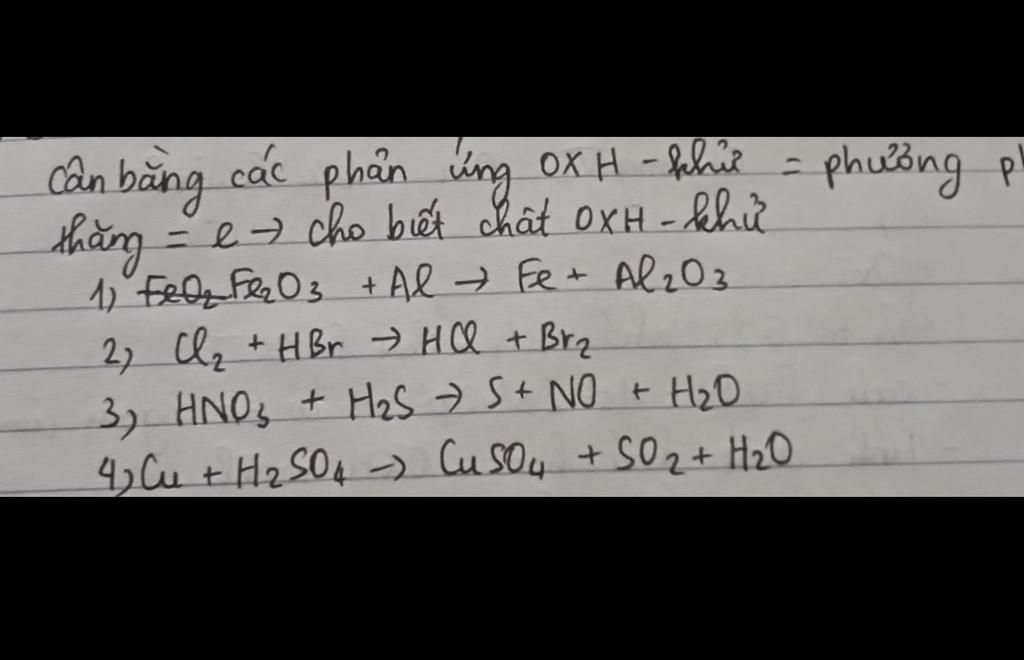 Cân bằng các phản ứng OXH - khử = phương ph
thăng = e → cho biết chất OXH - khử
1) FeO2 Fe2O3 + Al → Fe + Al2O3
2) Cl2 + HBr → HCl + Br2
3) HNO3 + H2S → S + NO + H2O
4) Cu + H2SO4 → CuSO4 + SO2 + H2O